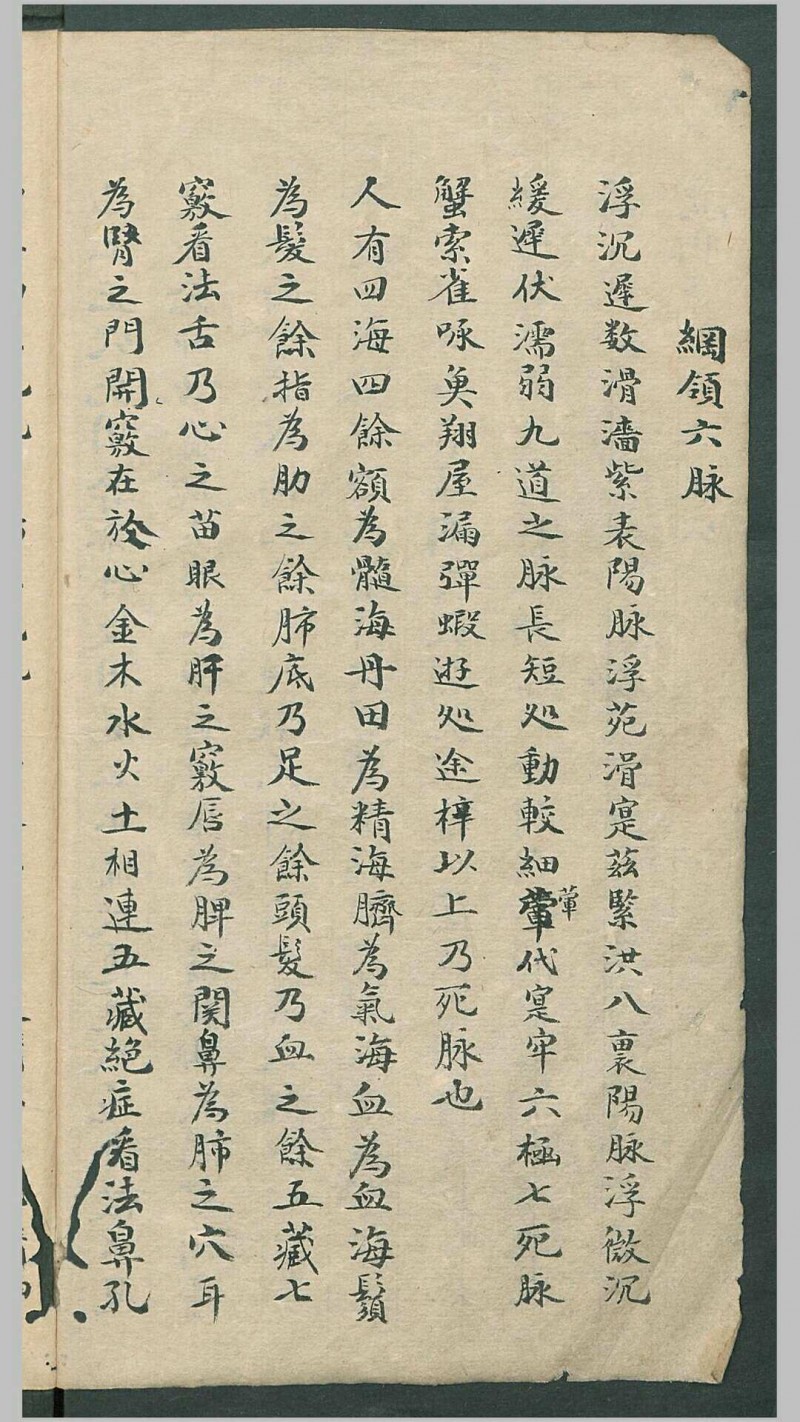 綱領六脉
浮沉遲数滑濇紫表陽脉浮苑滑寔茲緊洪八裏陽脉浮微沉
緩遲伏濡弱九道之脉長短処動較細葷代寔牢六極七死脉
蟹索雀啄奐翔屋漏彈蝦逰処途梓以上乃死脉也
人有四海四餘額為髓海丹田為精海臍為氣海血為血海鬚
為髮之餘指為肋之餘肺底乃足之餘頭髮乃血之餘五藏七
竅看法舌乃心之苗眼為肝之竅唇為脾之関鼻為肺之穴耳
為腎之門開竅在於心金木水火土相連五藏絕症看法鼻孔